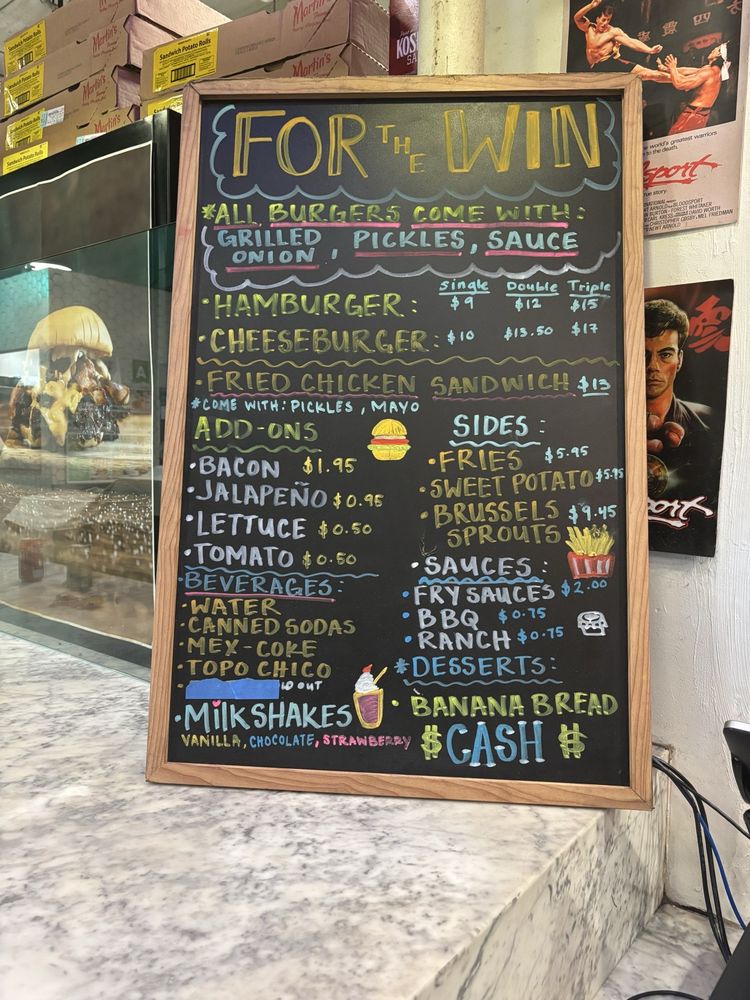 Sandwich Potato Rolls
Martin's
Sandwich Potato Rolls
Martin's
Martin's
Martin's
KOS
FOR THE WIN
*ALL BURGERS COME WITH:
GRILLED ONION, PICKLES, SAUCE
Single Double Triple
·HAMBURGER: $9 $12 $15
·CHEESEBURGER: $10 $13.50 $17
·FRIED CHICKEN SANDWICH $13
*COME WITH: PICKLES, MAYO
ADD-ONS
·BACON $1.95
·JALAPEÑO $0.95
·LETTUCE $0.50
·TOMATO $0.50
BEVERAGES:
·WATER
·CANNED SODAS
·MEX-COKE
·TOPO CHICO
OUT
·MILKSHAKES
VANILLA, CHOCOLATE, STRAWBERRY
SIDES:
·FRIES $5.95
·SWEET POTATO $5.95
·BRUSSELS SPROUTS $9.45
·SAUCES:
·FRY SAUCES $2.00
·BBQ $0.75
·RANCH $0.75
*DESSERTS:
·BANANA BREAD
$CASH$
world's greatest warriors
to the death.
sport
true story
FOREST WHITAKER
DAVID WORTH
MEL FRIEDMAN
NEWT ARNOLD
ort